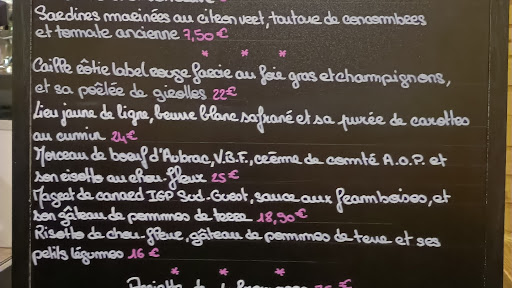 Sardines marinées au citron vert, tartare de concombres
et tomate ancienne 7,50€
* * *
Caille rôtie label rouge farcie au foie gras et champignons,
et sa poêlée de girolles 22€
Lieu jaune de ligne, beurre blanc safrané et sa purée de carottes
au cumin 24€
Morceau de boeuf d'Aubrac, V.B.F., crème de comté A.O.P. et
son risotto au chou-fleur 25€
Magret de canard IGP Sud-Ouest, sauce aux framboises, et
son gâteau de pommes de terre 18,90€
Risotto de chou-fleur, gâteau de pommes de terre et ses
petits légumes 16€
* * *